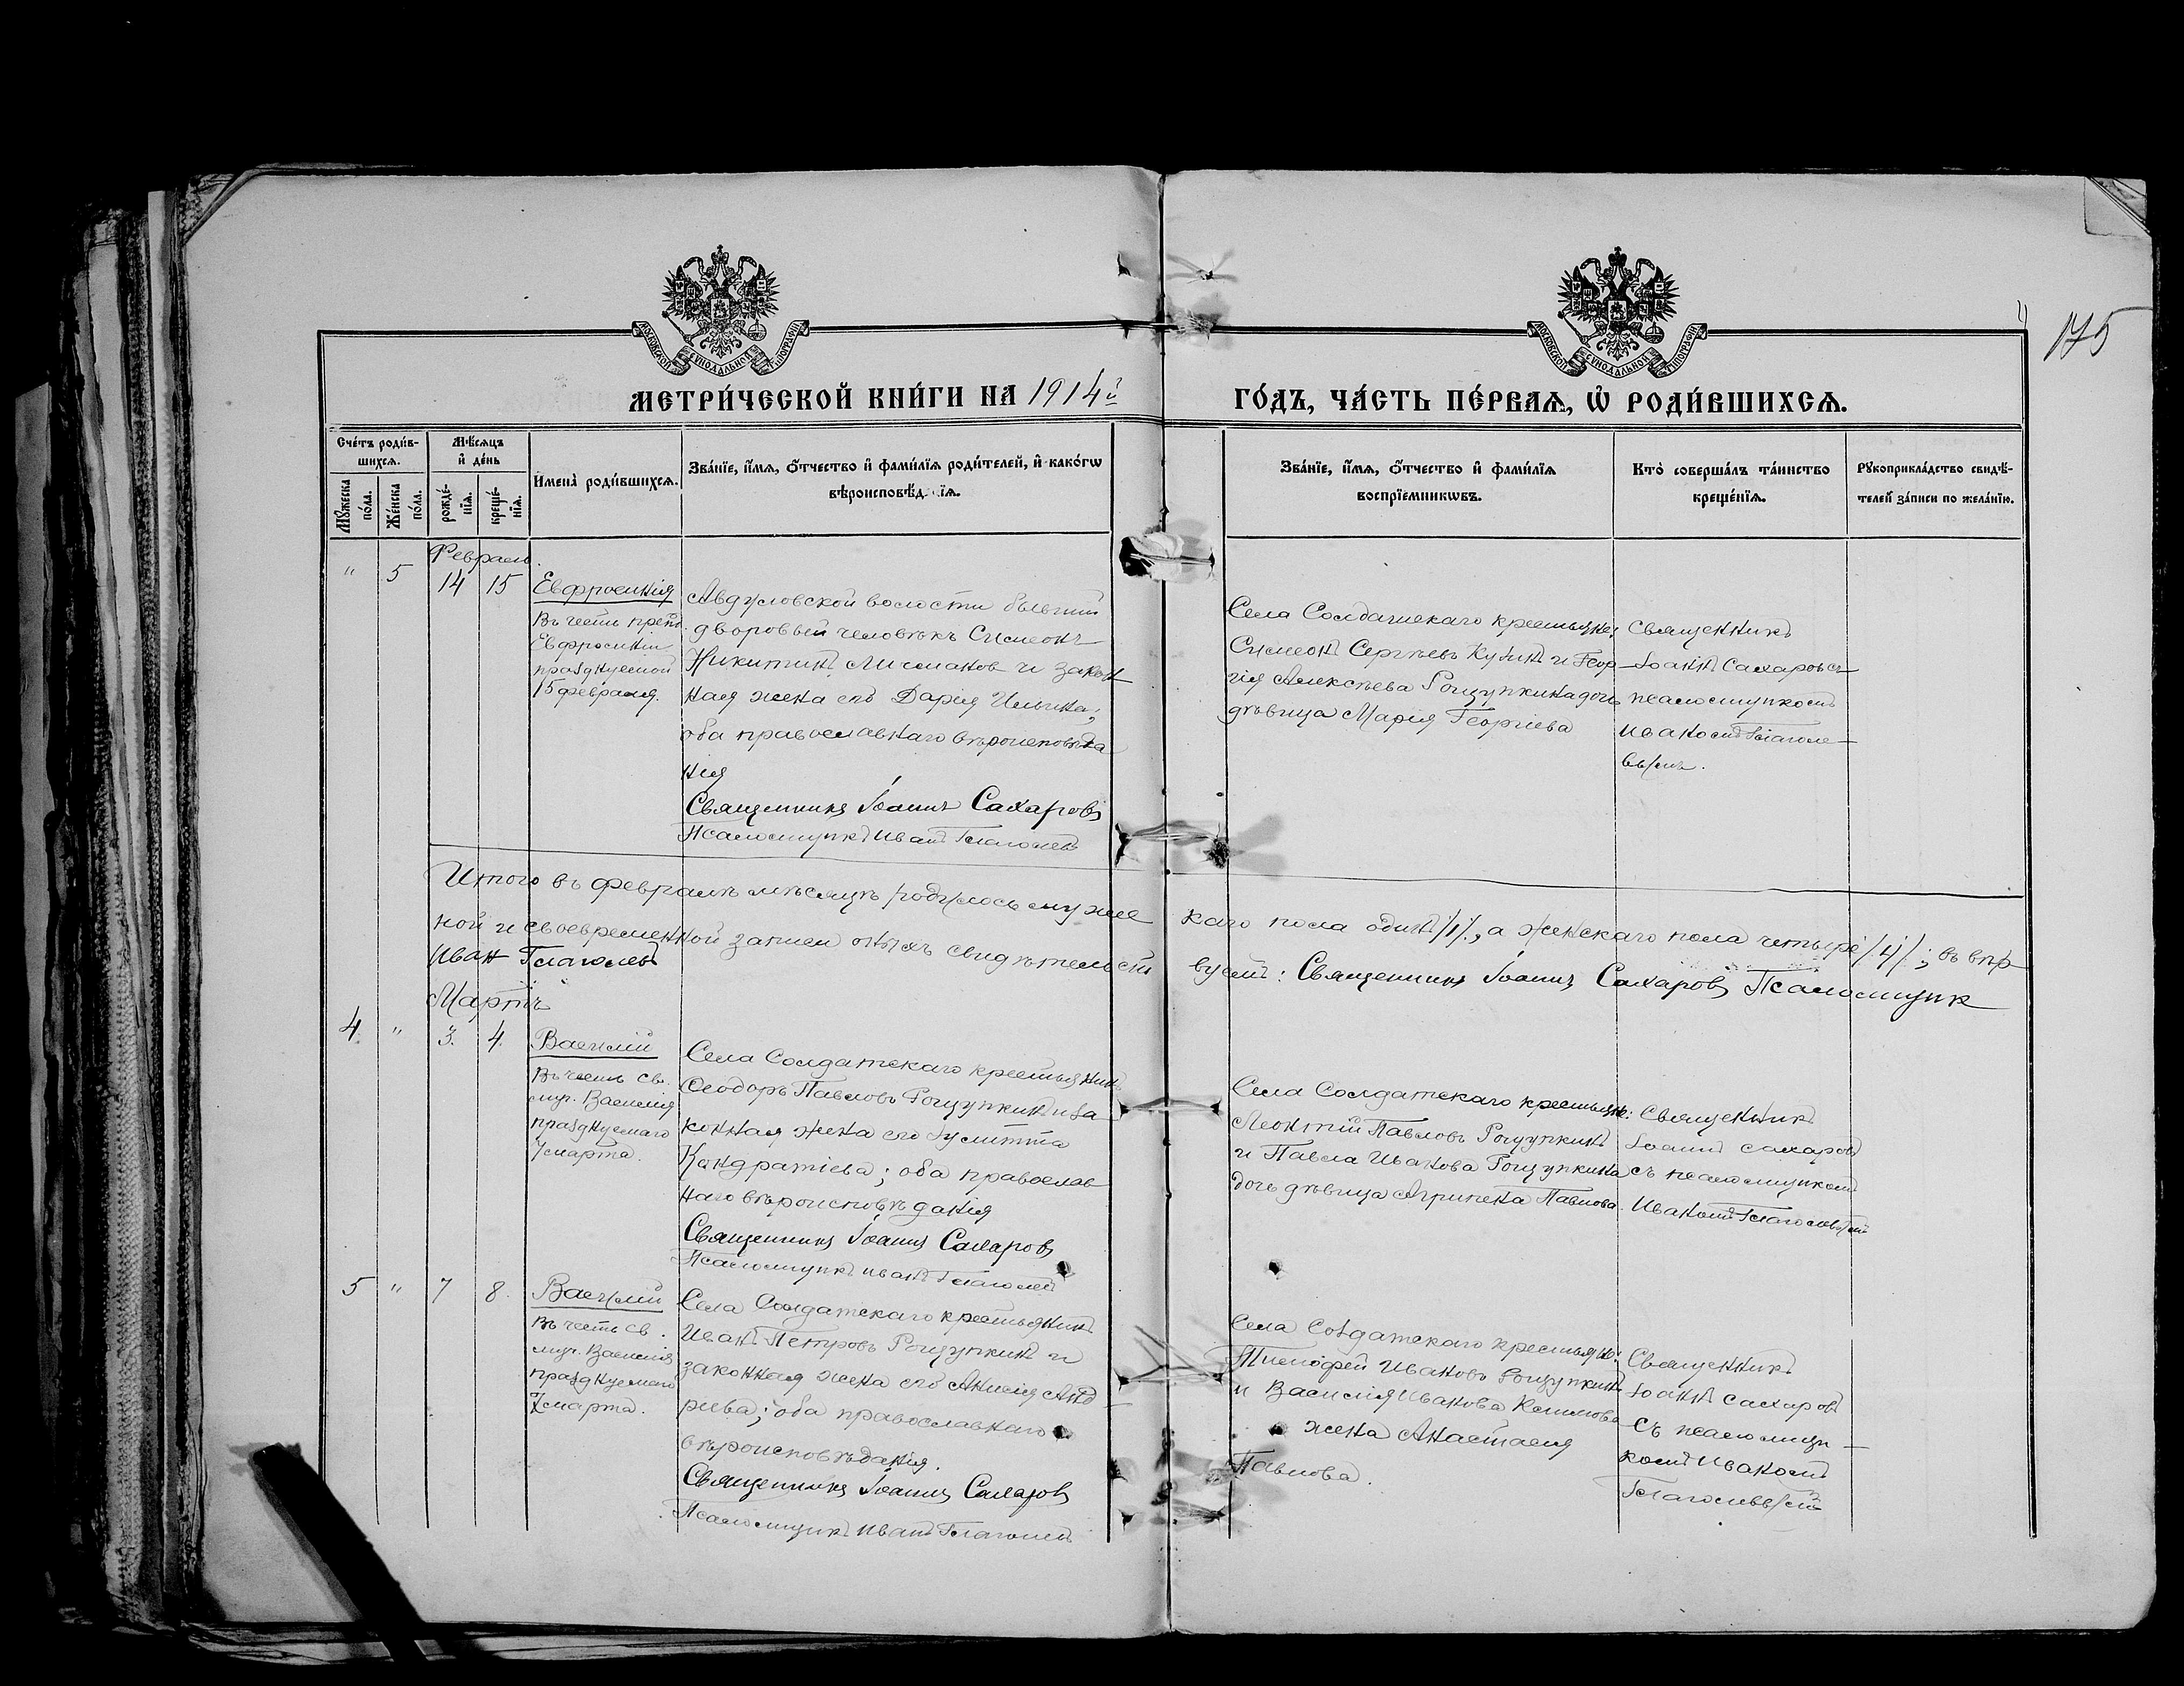 175
МОСКОВСКОЙ СУНОДАЛЬНОЙ ТИПОГРАФІИ
МОСКОВСКОЙ СУНОДАЛЬНОЙ ТИПОГРАФІИ
МЕТРИ́ЧЕСКОЙ КНИ́ГИ НА 1914й ГО́ДЪ, ЧА́СТЬ ПЕ́РВАѦ, Ѡ҆ РОДИ́ВШИХСѦ.
Сче́тъ роди́в-
шихсѧ.
Мѹ́жеска по́ла.
Же́нска по́ла.
Мѣ́сѧцъ
и҆ де́нь
рожде́-
нїѧ.
креще́-
нїѧ.
И҆мена̀ роди́вшихсѧ.
Зва́нїе, и҆́мѧ, ѻ҆́тчество и҆ фами́лїѧ роди́телей, и҆ како́гѡ
вѣроисповѣ́д. їѧ.
Зва́нїе, и҆́мѧ, ѻ҆́тчество и҆ фами́лїѧ
воспрїе́мникѡвъ.
Кто̀ соверша́лъ та́инство
креще́нїѧ.
Рѹкоприкла́дство свидѣ́-
телей за́писи по жела́нїю.
Февраль.
" 5 14 15
Евфросинія
Въ честь преп.
Евфросиніи
празднуемой
15 февраля.
Авдуловской волости бывший
дворовый человѣкъ Симеонъ
Никитинъ и закон
ная жена его Дарія Ильина;
оба православнаго вѣроисповѣда
нія
Священникъ Іоаннъ Сахаровъ
Псаломщикъ Иванъ Глаголевъ
Села Солдатскаго крестьяне:
Симеонъ Сергѣевъ Кузинъ и Геор
гія Алексѣева Рощупкина дочь
дѣвица Марія Георгіева
Священникъ
Іоаннъ Сахаровъ съ
псаломщикомъ
Иваномъ Глаголе-
вымъ.
Итого въ февралѣ мѣсяцѣ родилось мужес каго пола одинъ /1/, а женскаго пола четыре /4/; въ вѣр
ной и своевременной записи оныхъ свидѣтельст вуемъ: Священникъ Іоаннъ Сахаровъ Псаломщик
Иван Глаголевъ
Мартъ
4. " 3. 4.
Василій
Въ честь св.
муч. Василія
празднуемаго
7 марта.
Села Солдатскаго крестьянинъ
Ѳеодоръ Павловъ Рощупкинъ и за
конная жена его Іулитта
Кондратіева; оба православ
наго вѣроисповѣданія
Священникъ Іоаннъ Сахаровъ
Псаломщикъ Иванъ Глаголевъ
Села Солдатскаго крестьяне:
Леонтій Павловъ Рощупкинъ
и Павла Иванова Рощупкина
дочь дѣвица Агрипена Павлова.
Священникъ
Іоаннъ Сахаровъ
съ псаломщикомъ
Иваномъ Глаголевымъ
5 " 7 8.
Василій
Въ честь св.
муч. Василія
празднуемаго
7 марта.
Села Солдатскаго крестьянинъ
Иванъ Петровъ Рощупкинъ и
законная жена его Анисія Анд
реева; оба православнаго
вѣроисповѣданія.
Священникъ Іоаннъ Сахаровъ
Псаломщикъ Иванъ Глаголевъ
Села Солдатскаго крестьяне:
Тимофей Ивановъ Рощупкинъ
и Василія Иванова Климова
жена Анастасія
Павлова.
Священникъ
Іоаннъ Сахаровъ
съ псаломщи-
комъ Иваномъ
Глаголевымъ